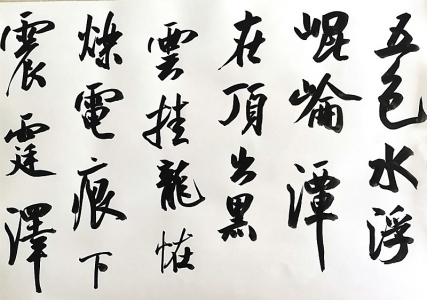 五色水浮
崐崘潭
在頂出黑
雲挂龍恠
爍電痕下
震霆澤